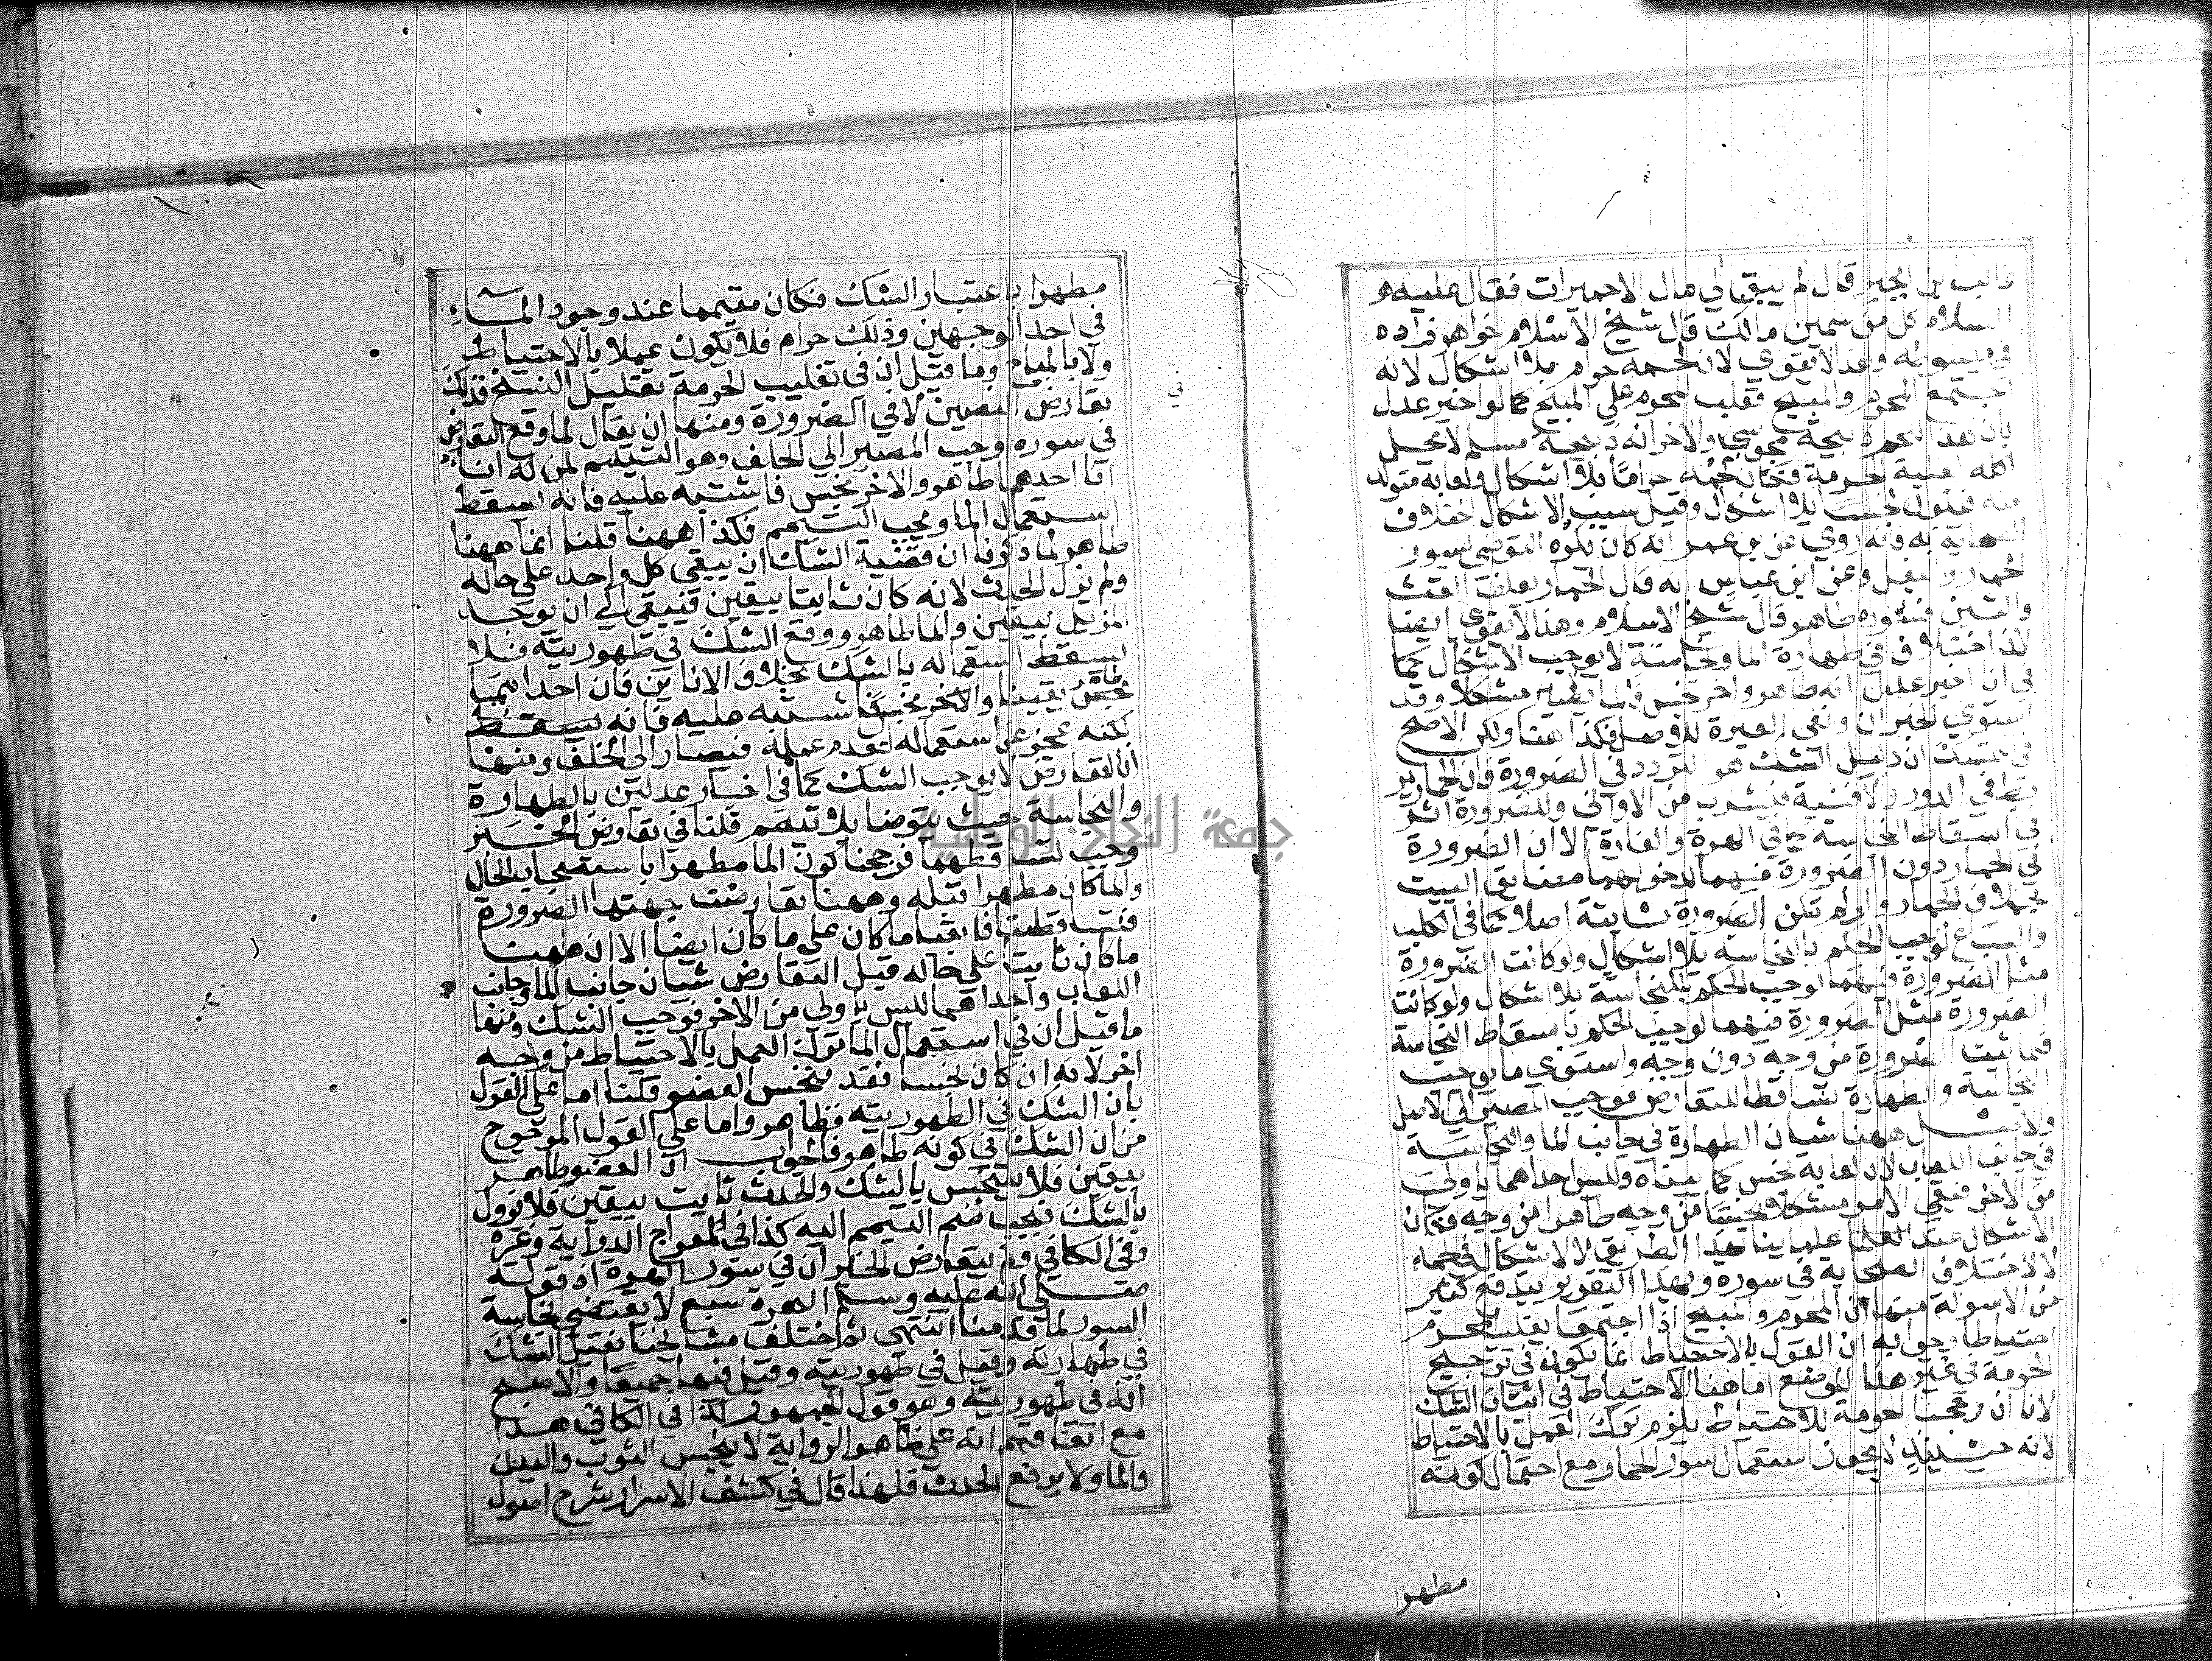 غالب بن ابجر قال لم يبق لي مال الا حميرات فقال عليه
السلام كل من سمين مالك قال شيخ الاسلام خواهر زاده
في مبسوطه وهذا لا يقوي لان لحمه حرام بلا اشكال لانه
اجتمع المحرم والمبيح فغلب المحرم على المبيح كما لو اخبر عدل
بان هذا اللحم ذبيحة مجوسي والاخر انه ذبيحة مسلم لا يحل
اكله لغلبة الحرمة فكان لحمه حراما بلا اشكال ولعابه متولد
منه فيكون نجسا بلا اشكال وقيل سبب الاشكال اختلاف
الصحابة فانه روي عن بن عمر انه كان يكره التوضي بسور
الحمار والبغل وعن ابن عباس انه قال الحمار يعلف القت
والتبن فسوره طاهر قال شيخ الاسلام وهذا لا يقوي ايضا
لان اختلاف في طهارة الما ونجاسته لا يوجب الاشكال كما
في انا اخبر عدل انه طاهر واخر نجس فالما لا يصير مشكلا وقد
استوي الخبران وبقي العبرة للاصل فكذا ههنا ولكن الاصح
في التمسك ان دليل الشك هو التردد في الضرورة فان الحمار ير
بط في الدور والافنية فيشرب من الاواني وللضرورة اثر
في اسقاط النجاسة كما في الهرة والفارة الا ان الضرورة
في الحمار دون الضرورة فيهما لدخولهما مضايق البيت
بخلاف الحمار ولو لم تكن الضرورة ثابتة اصلا كما في الكلب
والسباع لوجب الحكم بالنجاسة بلا اشكال ولو كانت الضرورة
مثل الضرورة فيهما لوجب الحكم بالنجاسة بلا اشكال ولو كانت
الضرورة مثل الضرورة فيهما لوجب الحكم باسقاط النجاسة
فلما ثبت الضرورة من وجه دون وجه واستوي ما يوجب
النجاسة والطهارة تساقطا للتعارض فوجب المصير الي الاصل
والاصل ههنا شيان الطهارة في جانب الما والنجاسة
في جانب اللعاب لان لعابه نجس كما بيناه وليس احداهما باولى
من الاخر فبقي الامر مشكلا نجسا من وجه طاهرا من وجه فكان
الاشكال عند علماينا بهذا الطريق لا لاشكال في لحمه
لا لاختلاف الصحابة في سوره وبهذا التقرير يندفع كثير
من الاسولة منها ان المحرم والمبيح اذا اجتمعا يغلب المحرم
احتياطا وجوابه ان القول بالاحتياط انما يكون في ترجيح
الحرمة في غير هذا الموضع اما هنا الاحتياط في اثبات الشك
لانا ان رجحنا الحرمة للاحتياط يلزم ترك العمل بالاحتياط
لانه حينئذ لا يجوز استعمال سور الحمار مع احتمال كونه
مطهرا
مطهرا باعتبار الشك فكان متيمما عند وجود الماء
في احد الوجهين وذلك حرام فلا يكون عملا بالاحتياط
ولا بالمباح وما قيل ان في تغليب الحرمة تقليل النسخ فذلك
في تعارض النصين لا في الضرورة ومنها ان يقال لما وقع التعارض
في سوره وجب المصير الي الخلف وهو التيمم لمن له اناان
احدهما طاهر والاخر نجس فاشتبه عليه فانه يسقط
استعمال الما ويجب التيمم فكذا ههنا قلنا الما ههنا
طاهر لما ذكرنا ان قضية الشك ان يبقي كل واحد على حاله
ولم يزل الحدث لانه كان ثابتا بيقين فيبقي الي ان يوجد
المزيل بيقين والما طاهر ووقع الشك في طهوريته فلا
يسقط استعماله بالشك بخلاف الاناين فان احداهما
نجس يقينا والاخر نجس اشتبه عليه فانه يسقط
لكنه عجز عن استعماله لعدم علمه فيصار الى الخلف ومنها
ان التعارض لا يوجب الشك كما في اخبار عدلين بالطهارة
والنجاسة حيث يتوضا بلا تيمم قلنا في تعارض الخبرين
وجب تساقطهما فرجحنا كون الما مطهرا باستصحاب الحال
والما كان مطهرا قبله وههنا تعارضت جهتا الضرورة
فتساقطتا فابقينا ما كان على ما كان ايضا الا ان ههنا
ما كان ثابتا على حاله قبل التعارض شيان جانب الما وجانب
اللعاب واحداهما ليس باولى من الاخر فوجب الشك ومنها
ما قيل ان في استعمال الما ترك العمل بالاحتياط من وجه
اخر لانه ان كان نجسا فقد تنجس العضو قلنا اما على القول
بان الشك في الطهورية فظاهر واما على القول المرجوح
من ان الشك في كونه طاهر فالجواب ان العضو طاهر
بيقين فلا يتنجس بالشك والحدث ثابت بيقين فلا يزول
بالشك فيجب ضم التيمم اليه كذا في المعراج الدراية وغيره
وفي الكافي ولم يتعارض الخبران في سور الهرة اذ قوله
صلى الله عليه وسلم الهرة سبع لا يقتضي نجاسة
السور لما قدمنا انتهى ثم اختلف مشايخنا فقيل الشك
في طهارته وقيل في طهوريته وقيل فيهما جميعا والاصح
انه في طهوريته وهو قول الجمهور كذا في الكافي هذا
مع اتفاقهم انه على ظاهر الرواية لا ينجس الثوب والبدن
والما ولا يرفع الحدث فلهذا قال في كشف الاسرار شرح اصول
جامعة النجاح الوطنية